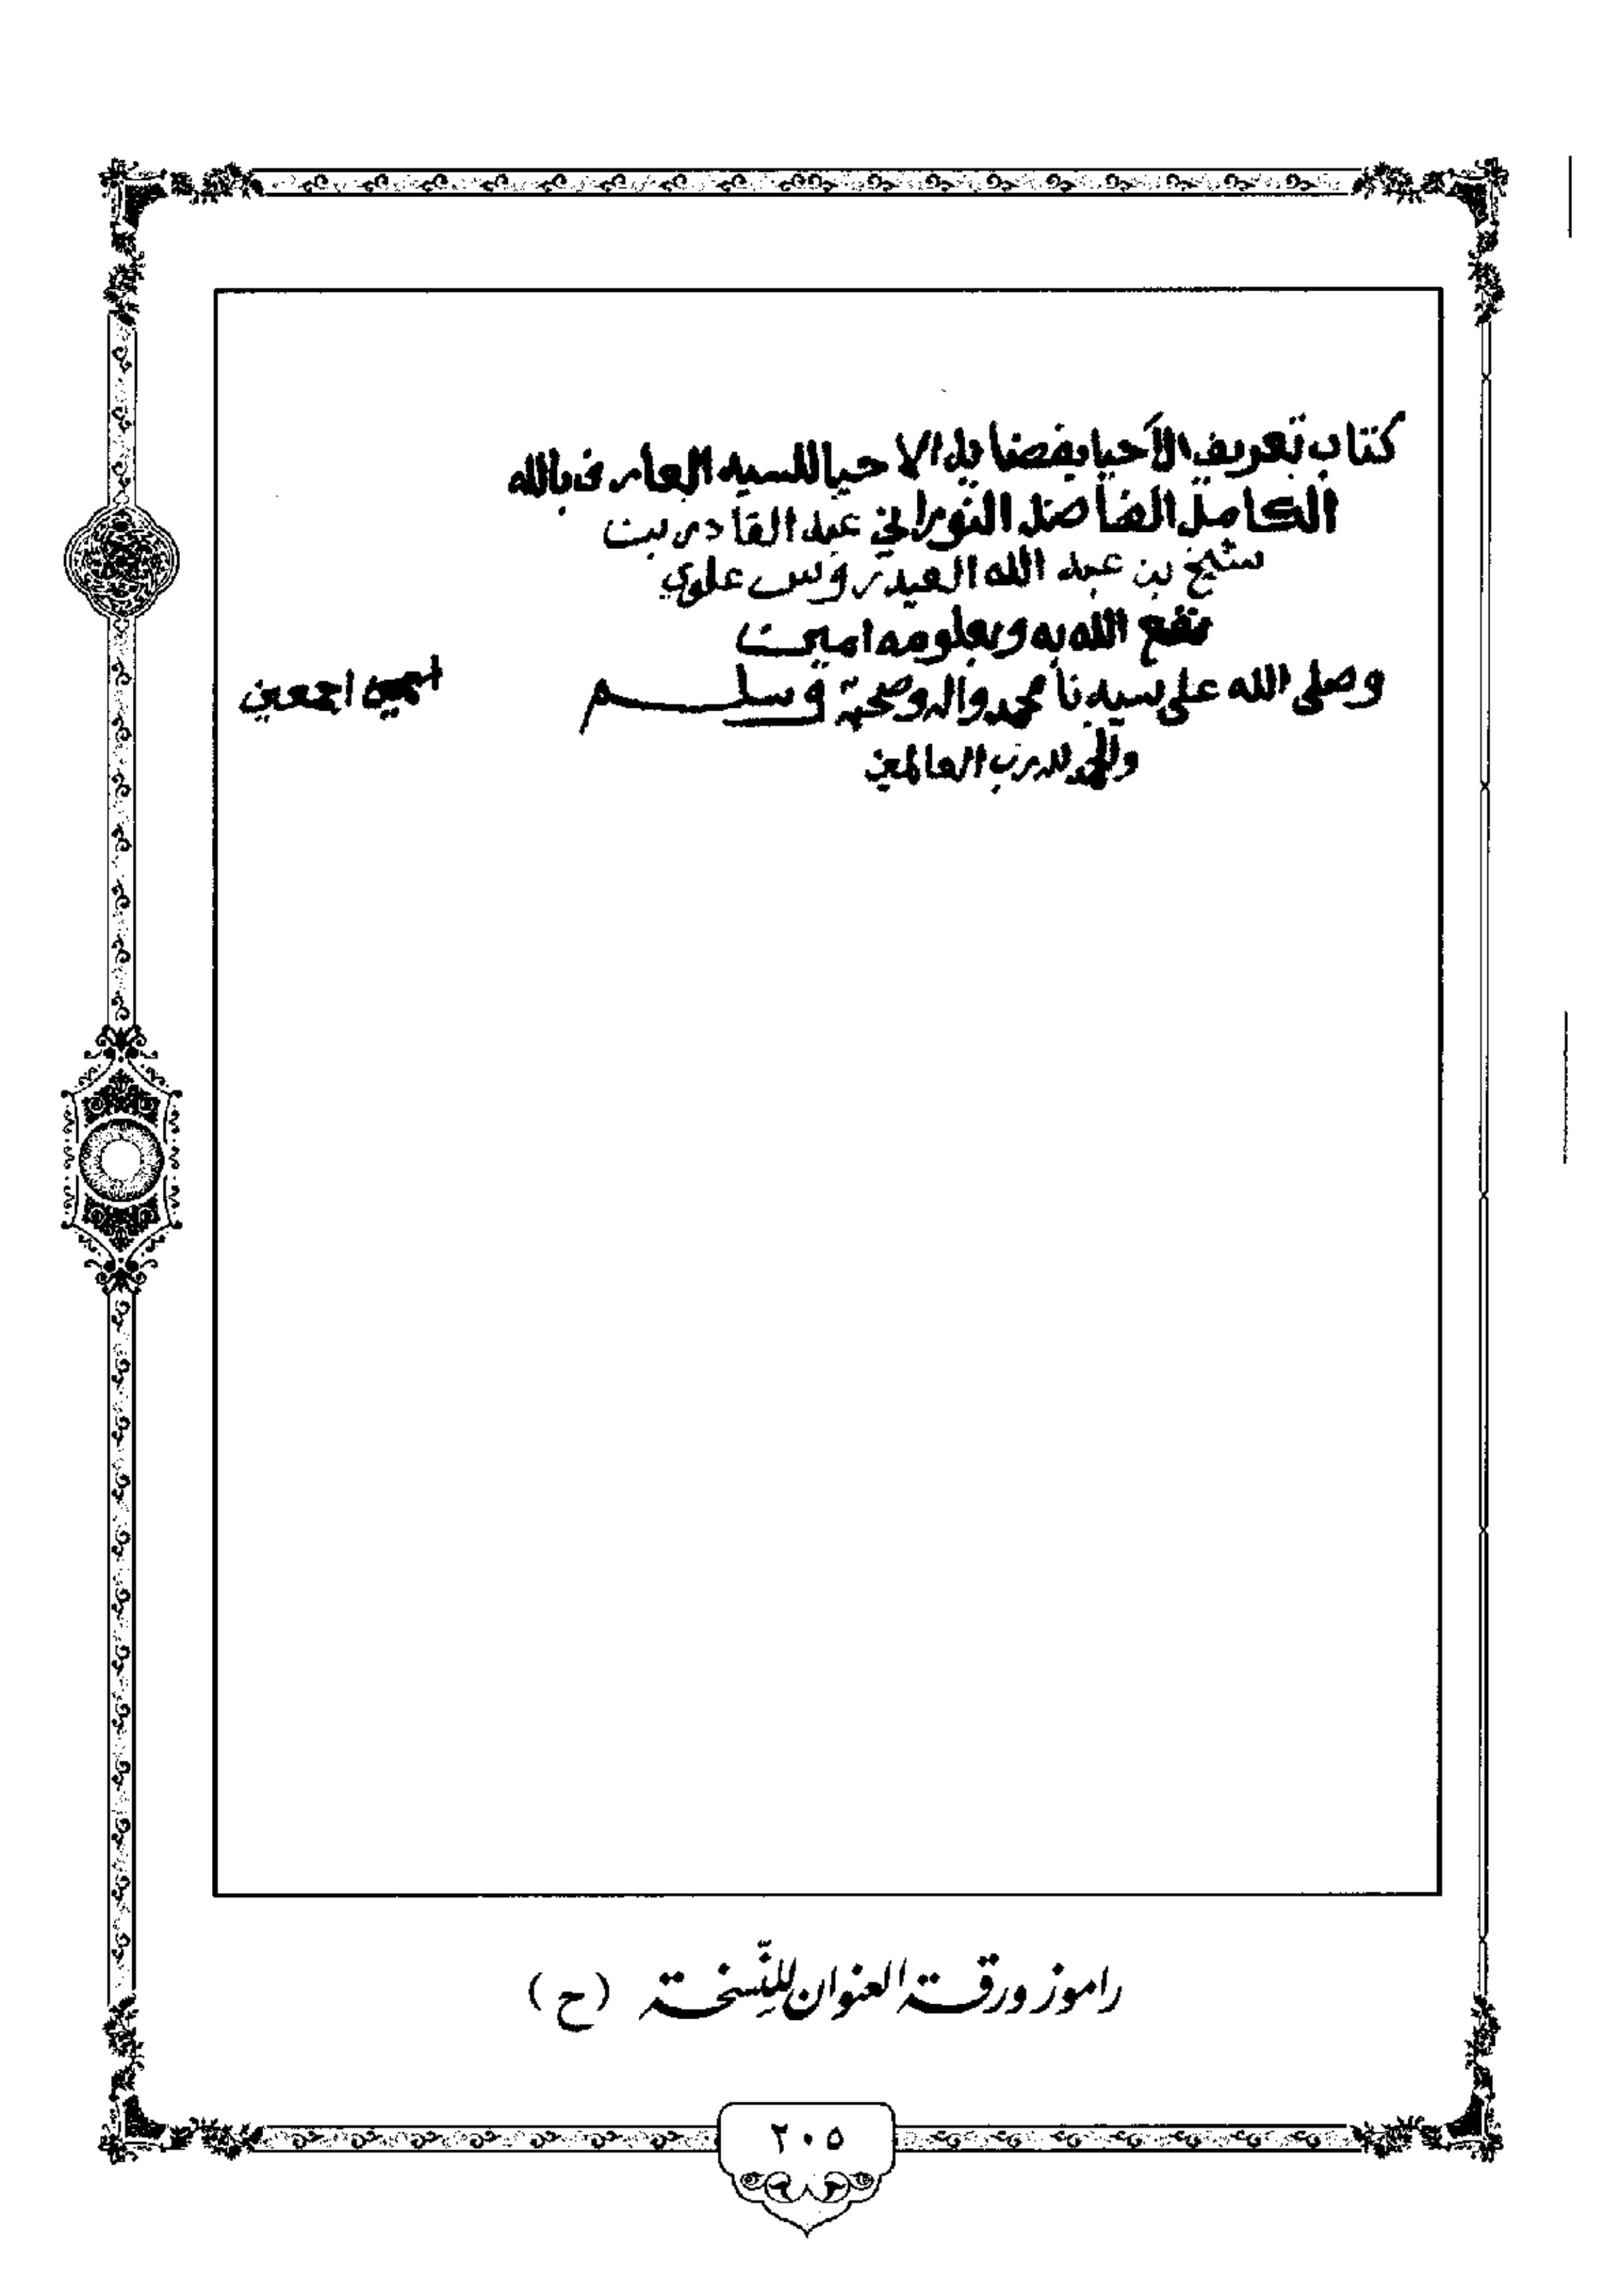 كتاب تعريف الأحيا بفضايل الاحيا للسيد العارف بالله
الكامل الفاضل النوراني عبد القادر بن
شيخ بن عبد الله العيدروس علوي
نفع الله به وبعلومه امين
وصلى الله على سيدنا محمد واله وصحبه وسلم اجمعين
والحمد لله رب العالمين
راموز ورقة العنوان للنّسخة (ح)
٢٠٥